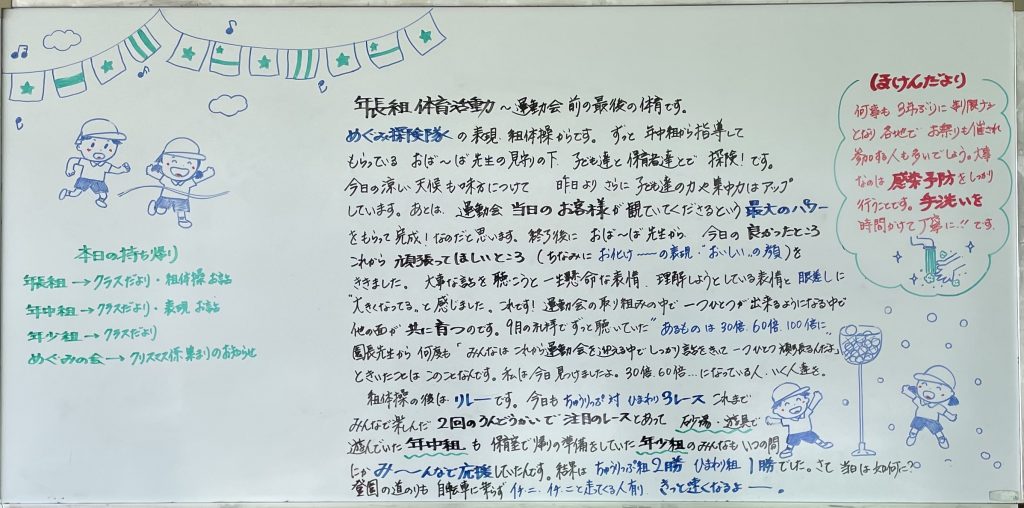 年長組 体育活動 ～運動会 前の最後の体育です。
めぐみ探険隊 の 表現、組体操からです。 ずっと 年中組から指導して
もらっている おば～ば先生の見守りの下 子ども達と保育者達とで 探険！です。
今日の涼しい天候も味方につけて 昨日より さらに 子ども達の力や集中力はアップ
しています。あとは、運動会 当日の お客様が観ていてくださるという 最大のパワー
をもらって完成！なのだと思います。終了後に おば～ば先生から 今日の良かったところ
これから 頑張ってほしいところ (ちなみに お化けーーの表現・"おいしい"の顔) を
ききました。 大事な話を聴こうと一生懸命な表情、理解しようとしている表情と眼差しに
"大きくなってる"と感じました。これです！運動会の取り組みの中で一つひとつが出来るようになる中で
他の面が 共に育つのです。9月の礼拝でずっと聴いていた "あるものは30倍、60倍、100倍に"
園長先生から 何度も「みんなは これから運動会を迎える中で しっかり話をきいて 一つひとつ 頑張るんだよ」
ときいたことは このことなんです。私は今日見つけましたよ。30倍、60倍…になっている人、いく人達を。
組体操の後は リレーです。今日も ちゅうりっぷ 対 ひまわり 3レース これまで
みんなで楽しんだ 2回のうんどうかいで 注目のレースとあって 砂場・遊具で
遊んでいた 年中組 も 保育室で帰りの準備をしていた 年少組 のみんなも いつの間
にか み～～んなで応援していたんです。結果は ちゅうりっぷ組 2勝 ひまわり組 1勝でした。さて 当日は如何に？
登園の道のりも 自転車に乗らず イチ・ニ、イチ・ニと走ってくる人有り きっと速くなるよー。
本日の持ち帰り
年長組 → クラスだより・組体操 お話
年中組 → クラスだより・表現 お話
年少組 → クラスだより
めぐみの会 → クリスマス係 集まりのお知らせ
ほけんだより
何事も 3年ぶりに 制限ナシ
となり 各地で お祭りも催され
参加する人も多いでしょう。大事
なのは 感染予防をしっかり
行うことです。手洗いを
時間かけて 丁寧に…!! です。